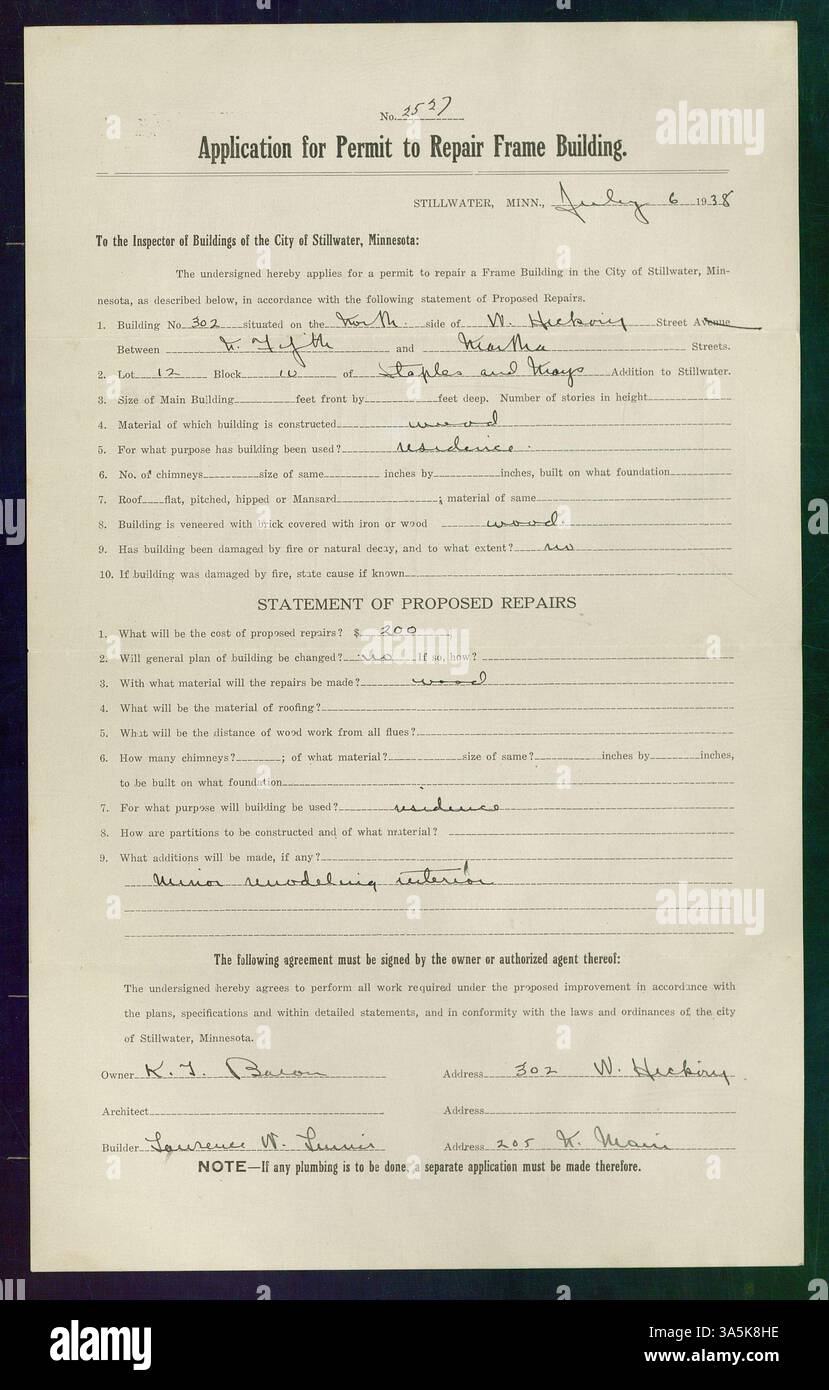 No. 2527
Application for Permit to Repair Frame Building.
STILLWATER, MINN., July 6 1938
To the Inspector of Buildings of the City of Stillwater, Minnesota:
The undersigned hereby applies for a permit to repair a Frame Building in the City of Stillwater, Min-
nesota, as described below, in accordance with the following statement of Proposed Repairs.
1. Building No. 302 situated on the North side of W. Hickory Street Avenue
Between N. Fifth and Martha Streets.
2. Lot 12 Block 10 of Staples and Mays Addition to Stillwater.
3. Size of Main Building feet front by feet deep. Number of stories in height
4. Material of which building is constructed wood
5. For what purpose has building been used? residence.
6. No. of chimneys size of same inches by inches, built on what foundation
7. Roof flat, pitched, hipped or Mansard ; material of same
8. Building is veneered with brick covered with iron or wood wood.
9. Has building been damaged by fire or natural decay, and to what extent? no
10. If building was damaged by fire, state cause if known
STATEMENT OF PROPOSED REPAIRS
1. What will be the cost of proposed repairs? $ 200
2. Will general plan of building be changed? no If so, how?
3. With what material will the repairs be made? wood
4. What will be the material of roofing?
5. What will be the distance of wood work from all flues?
6. How many chimneys? ; of what material? size of same? inches by inches,
to be built on what foundation
7. For what purpose will building be used? residence
8. How are partitions to be constructed and of what material?
9. What additions will be made, if any?
Minor remodeling interior
The following agreement must be signed by the owner or authorized agent thereof:
The undersigned hereby agrees to perform all work required under the proposed improvement in accordance with
the plans, specifications and within detailed statements, and in conformity with the laws and ordinances of the city
of Stillwater, Minnesota.
Owner K. T. Bacon Address 302 W. Hickory
Architect Address
Builder Laurence W. Address 205 N. Main
NOTE—If any plumbing is to be done, a separate application must be made therefore.
alamy
Image ID: 3A5K8HE
www.alamy.com